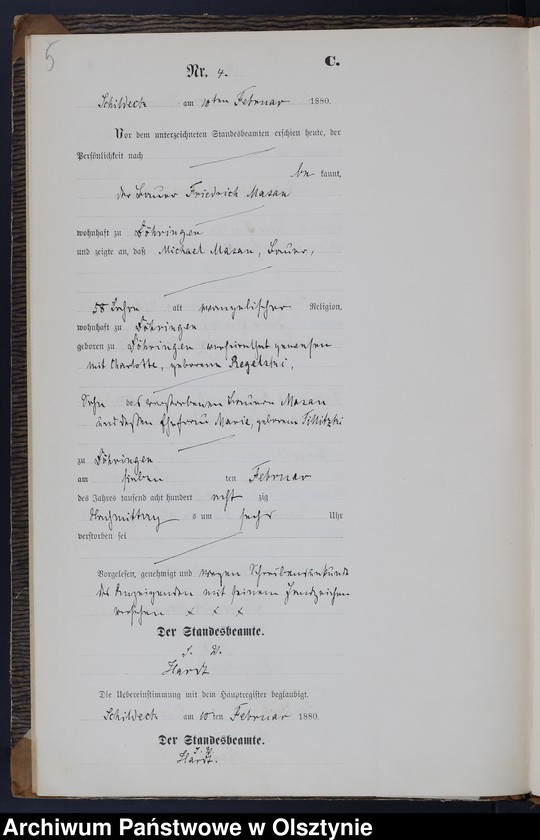 5
C.
Nr. 4.
Schildeck am 10ten Februar 1880.
Vor dem unterzeichneten Standesbeamten erschien heute, der
Persönlichkeit nach
be kannt,
der Bauer Friedrich Masan
wohnhaft zu Döhringen
und zeigte an, daß Michael Masan, Bauer,
58 Jahre alt evangelischer Religion,
wohnhaft zu Döhringen
geboren zu Döhringen verheirathet gewesen
mit Charlotte, geborene Regelski,
Sohn des verstorbenen Bauern Masan
und dessen Ehefrau Marie, geborene
zu Döhringen
am sieben ten Februar
des Jahres tausend acht hundert acht zig
Nachmittag s um sechs Uhr
verstorben sei
Vorgelesen, genehmigt und wegen Schreibensunkunde
des Anzeigenden mit seinem Handzeichen
versehen x x x
Der Standesbeamte.
J. V.
Hardt
Die Uebereinstimmung mit dem Hauptregister beglaubigt.
Schildeck am 10ten Februar 1880.
Der Standesbeamte.
J. V.
Hardt.
Archiwum Państwowe w Olsztynie